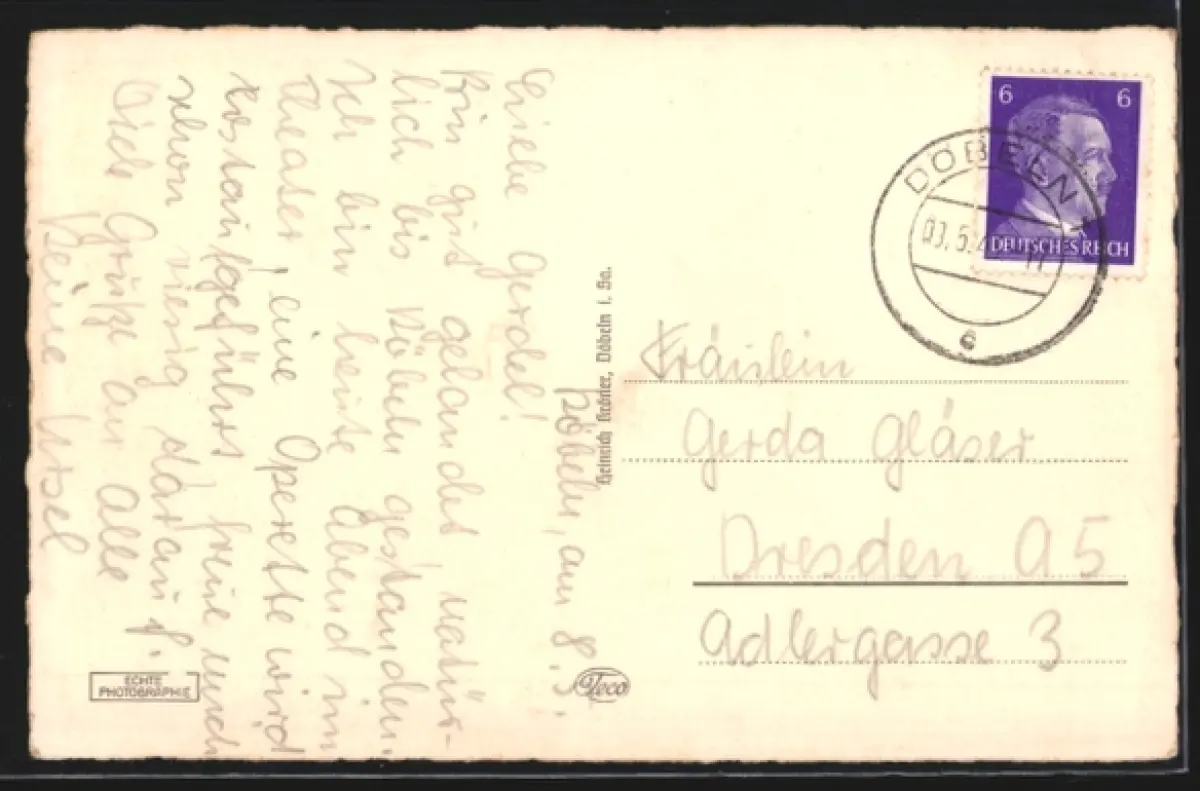 Döbeln, am 8.5.
Liebe Gerdel!
Bin gut gelandet natür-
lich bis Döbeln gestanden.
Ich bin heute Abend im
Theater, eine Operette wird
aufgeführt freue mich
schon riesig darauf.
Dich Grüße an Alle
Deine Ursel
ECHTE
PHOTOGRAPHIE
Heinrich Kröner, Döbeln i. Sa.
Teco
6 6
DEUTSCHES REICH
DÖBELN 1
03.5.4
17
e
Fräulein
Gerda Gläser
Dresden A5
Adlergasse 3